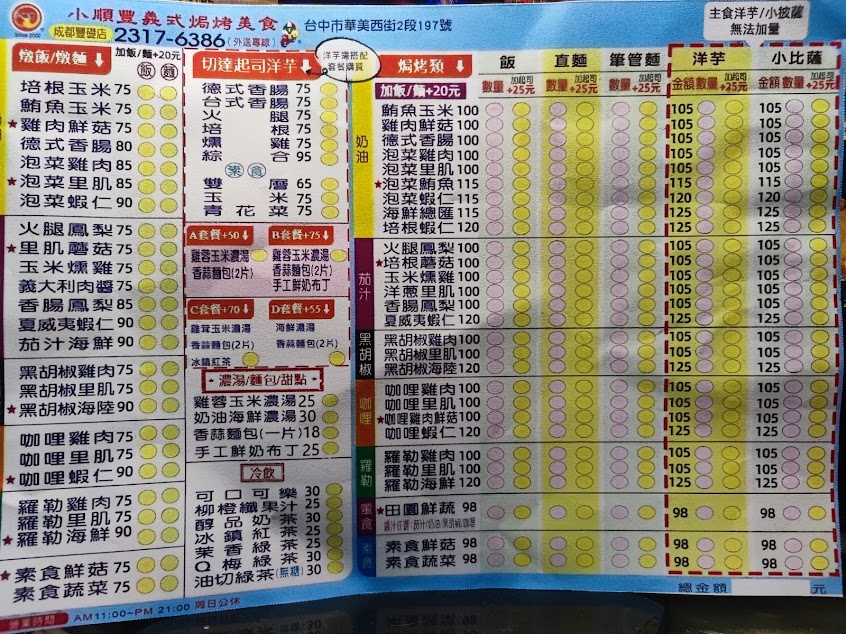 小順豐義式焗烤美食
Since 2002
成都豐硬店
2317-6386(外送專線)
台中市華美西街2段197號
主食洋芋/小披薩
無法加量
燉飯/燉麵
加飯/麵+20元
飯 麵
培根玉米 75
鮪魚玉米 75
★雞肉鮮菇 75
德式香腸 80
泡菜雞肉 85
★泡菜里肌 85
泡菜蝦仁 90
火腿鳳梨 75
★里肌蘑菇 75
玉米燻雞 75
義大利肉醬 75
香腸鳳梨 85
夏威夷蝦仁 90
茄汁海鮮 90
黑胡椒雞肉 75
黑胡椒里肌 75
★黑胡椒海陸 90
咖哩雞肉 75
咖哩里肌 75
★咖哩蝦仁 90
羅勒雞肉 75
羅勒里肌 75
★羅勒海鮮 90
★素食鮮菇 75
素食蔬菜 75
營業時間 AM11:00~PM 21:00 周日公休
切達起司洋芋
洋芋需搭配
套餐購買
德式香腸 75
台式香腸 75
火腿 75
培根 75
燻雞 75
綜合 95
素食
雙層 65
玉米 75
青花菜 75
A套餐+50
雞蓉玉米濃湯
香蒜麵包(2片)
B套餐+75
雞蓉玉米濃湯
香蒜麵包(2片)
手工鮮奶布丁
C套餐+70
雞茸玉米濃湯
香蒜麵包(2片)
冰鎮紅茶
D套餐+55
海鮮濃湯
香蒜麵包(2片)
★濃湯/麵包/甜點★
雞蓉玉米濃湯 25
奶油海鮮濃湯 30
香蒜麵包(一片) 18
手工鮮奶布丁 25
冷飲
可口可樂 30
柳橙纖果汁 25
醇品奶茶 30
冰鎮紅茶 25
茉香綠茶 25
Q梅綠茶 30
油切綠茶(無糖) 30
焗烤類
加飯/麵+20元
飯 直麵 筆管麵 洋芋 小比薩
數量 加起司+25元 數量 加起司+25元 數量 加起司+25元 金額 數量 加起司+25元 金額 數量 加起司+25元
奶油
鮪魚玉米 100 105 105
雞肉鮮菇 100 105 105
德式香腸 100 105 105
泡菜雞肉 100 105 105
泡菜里肌 100 105 105
★泡菜鮪魚 115 115 115
泡菜蝦仁 120 120 120
海鮮總匯 115 125 125
培根蝦仁 120 125 125
茄汁
火腿鳳梨 100 105 105
★培根蘑菇 100 105 105
玉米燻雞 100 105 105
洋蔥里肌 100 105 105
香腸鳳梨 100 105 105
夏威夷蝦仁 120 125 125
黑胡椒
黑胡椒雞肉 100 105 105
黑胡椒里肌 100 105 105
黑胡椒海鮮 120 125 125
咖哩
咖哩雞肉 100 105 105
咖哩里肌 100 105 105
★咖哩雞肉鮮菇 100 105 105
咖哩蝦仁 120 125 125
羅勒
羅勒雞肉 100 105 105
羅勒里肌 100 105 105
羅勒海鮮 120 125 125
葷食
★田園鮮蔬 98 98 98
醬汁任選:茄汁/奶油/黑胡椒/咖哩
素食
素食鮮菇 98 98 98
素食蔬菜 98 98 98
總金額 元